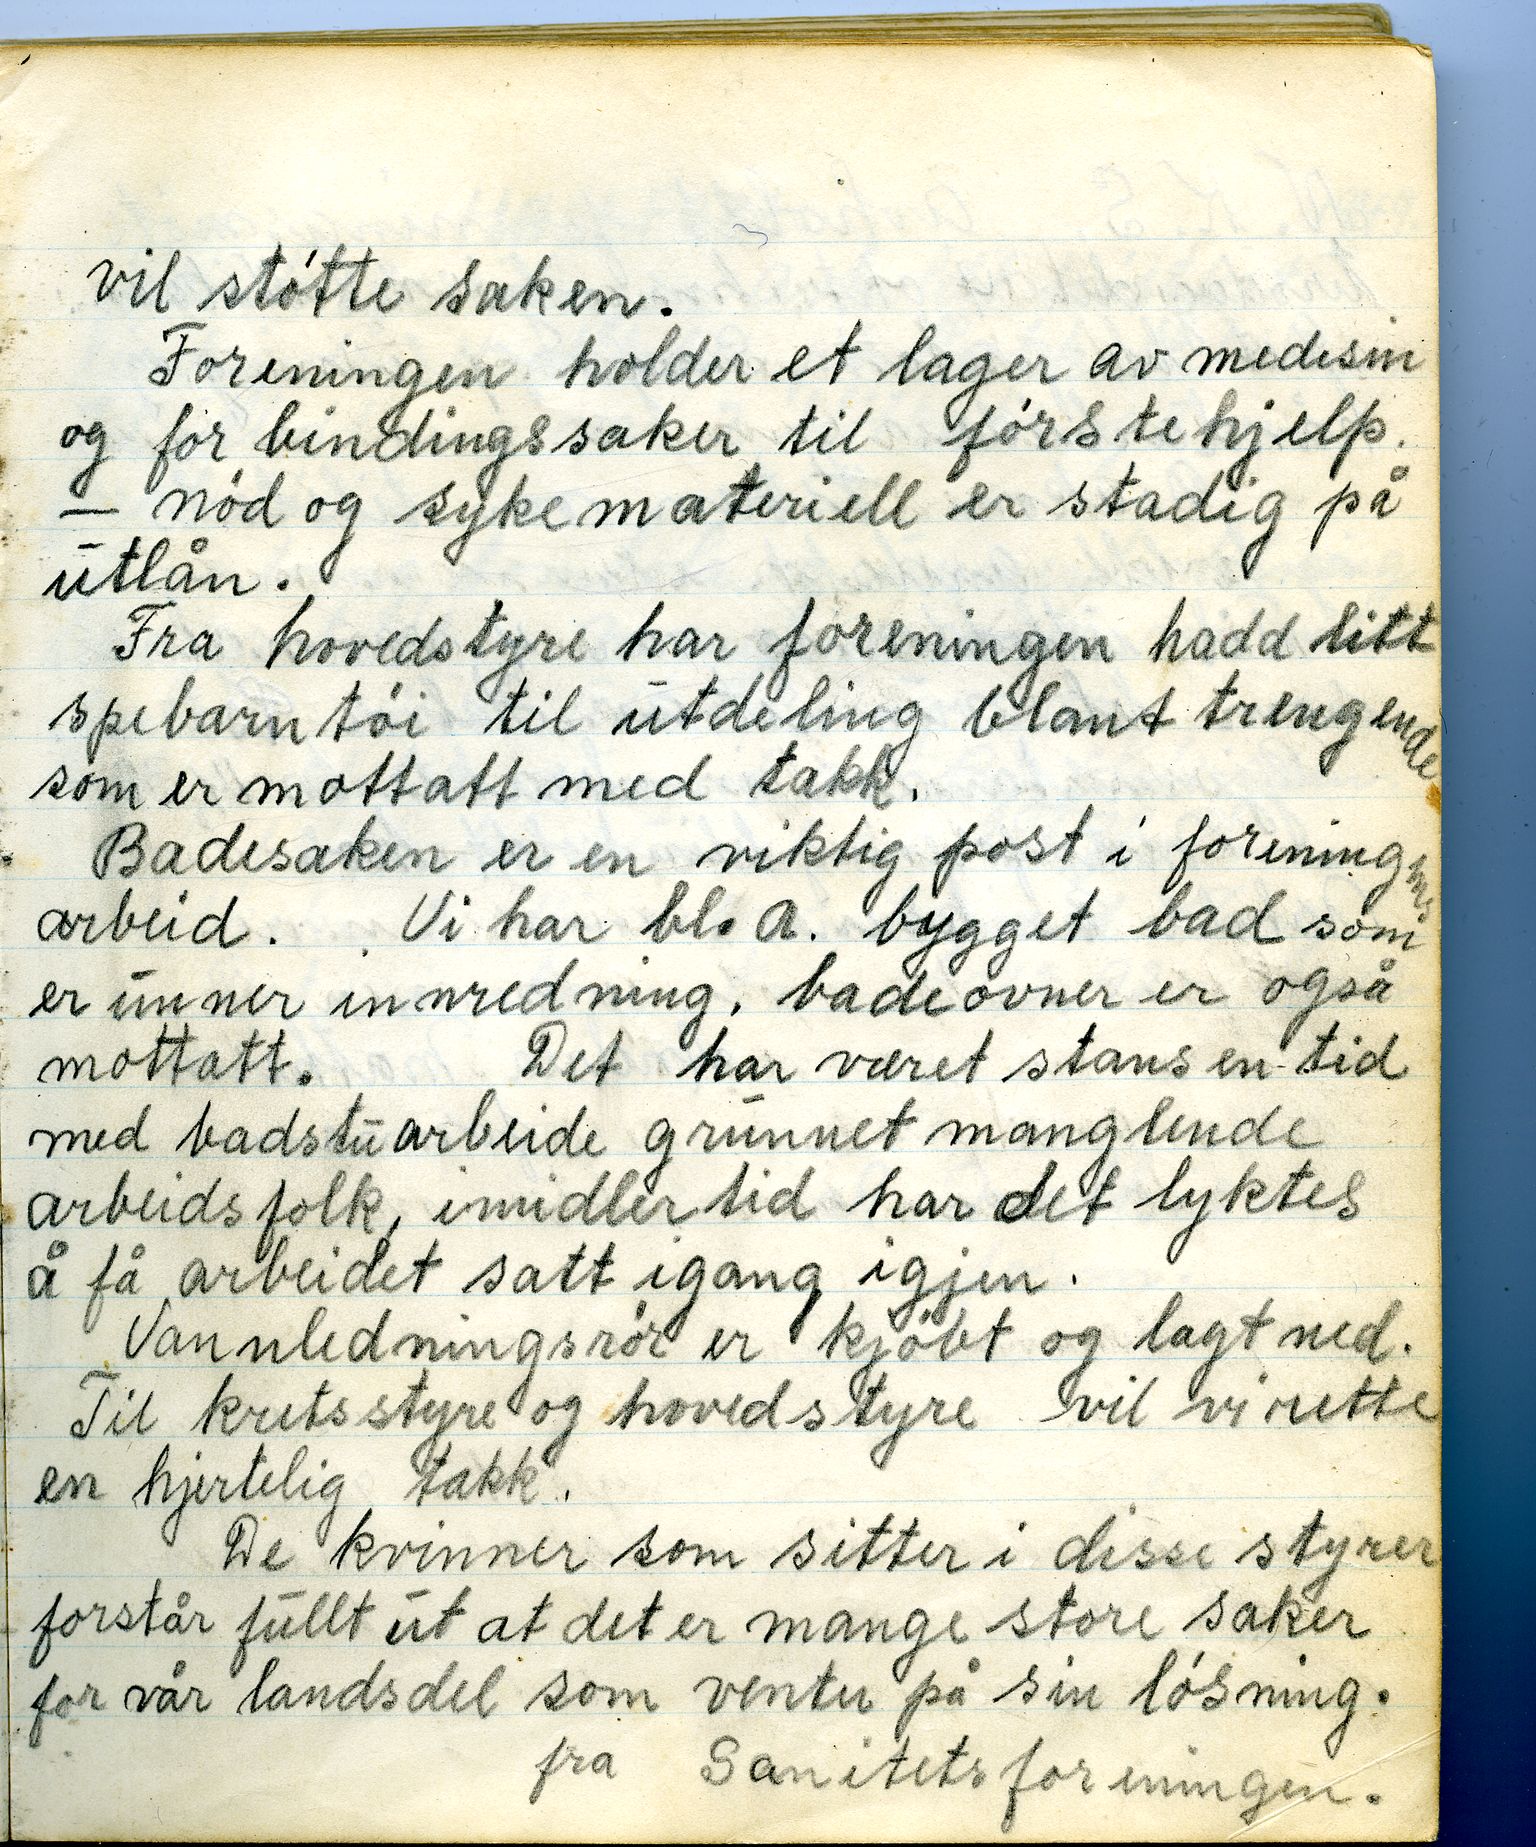 vil støtte saken.
Foreningen holder et lager av medesin
og forbindingssaker til førstehjelp.
— nød og sykemateriell er stadig på
utlån.
Fra hovedstyre har foreningen hadd litt
spebarntøi til utdeling blant trengende
som er mottatt med takk.
Badesaken er en viktig post i foreningens
arbeid. Vi har bl. a. bygget bad som
er unner innredning, badeovner er også
mottatt. Det har været stans en tid
med badstuarbeide grunnet manglende
arbeidsfolk, imidlertid har det lyktes
å få arbeidet satt igang igjen.
Vannledningsrør er kjøbt og lagt ned.
Til kretsstyre og hovedstyre vil vi rette
en hjertelig takk.
De kvinner som sitter i disse styrer
forstår fullt ut at det er mange store saker
for vår landsdel som venter på sin løsning.
fra Sanitetsforeningen.